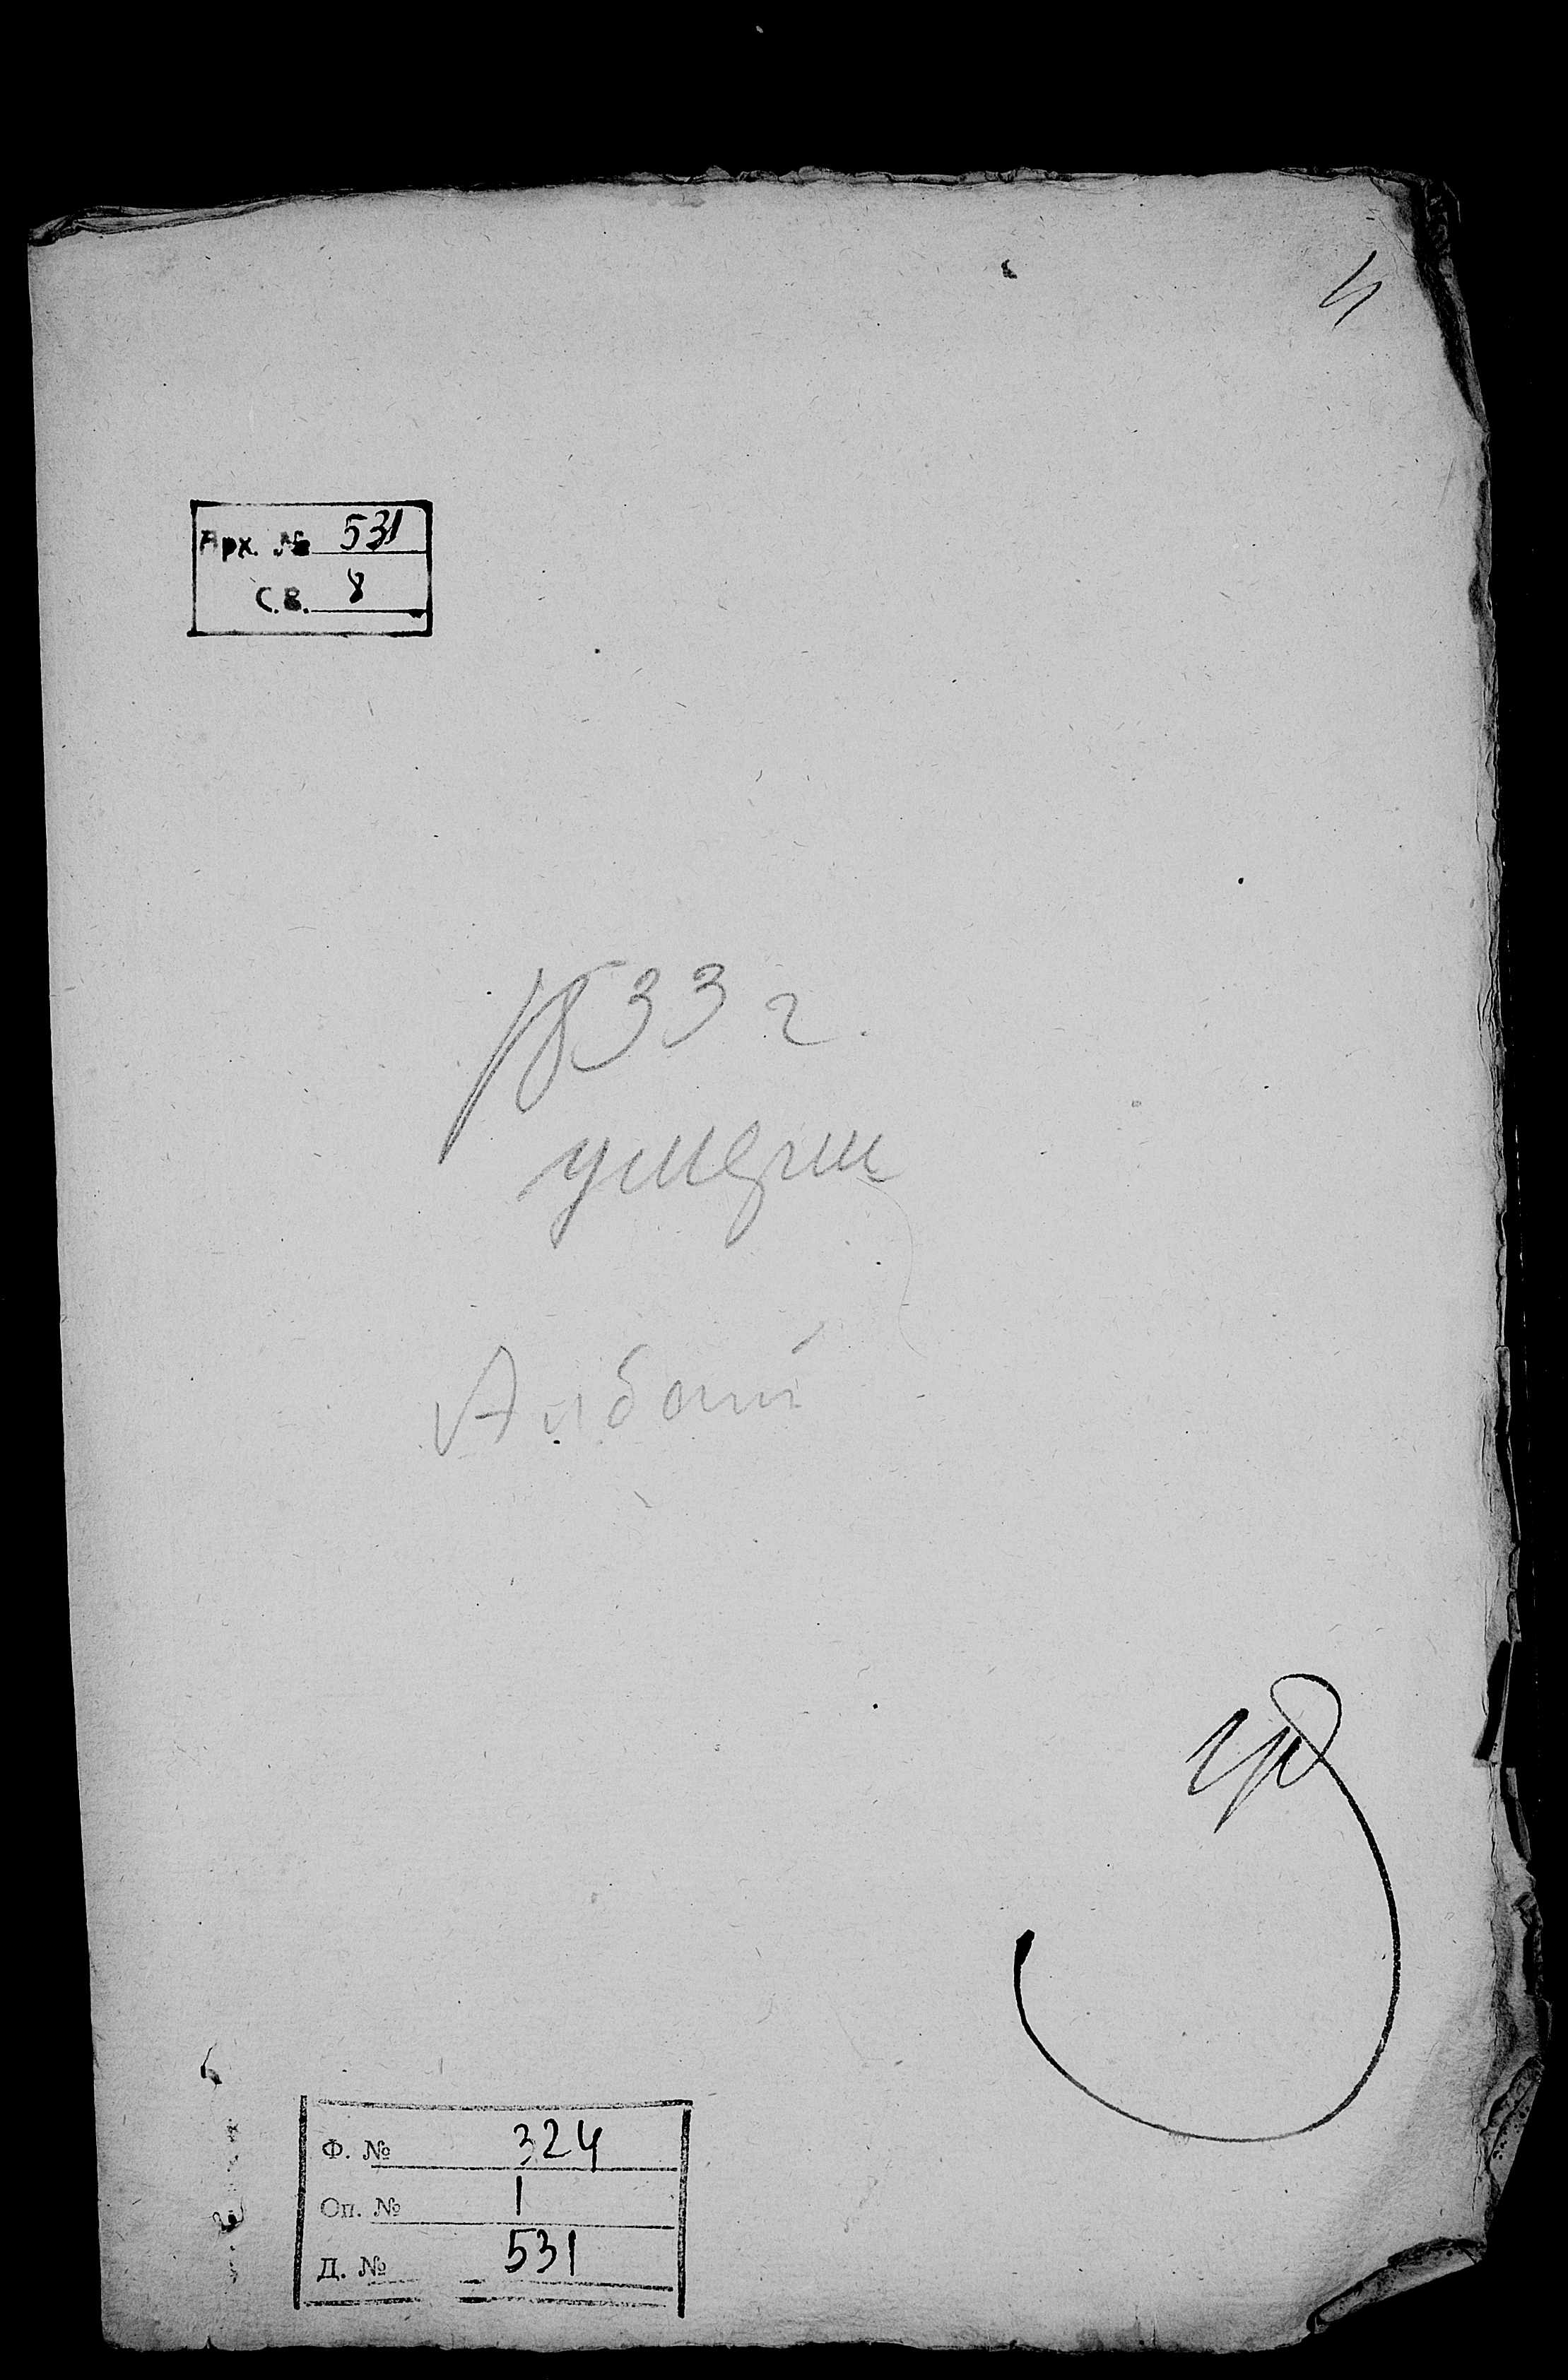 Арх. № 531
С.В. 8
1833 г.
умерш
Ф. № 324
Оп. № 1
Д. № 531